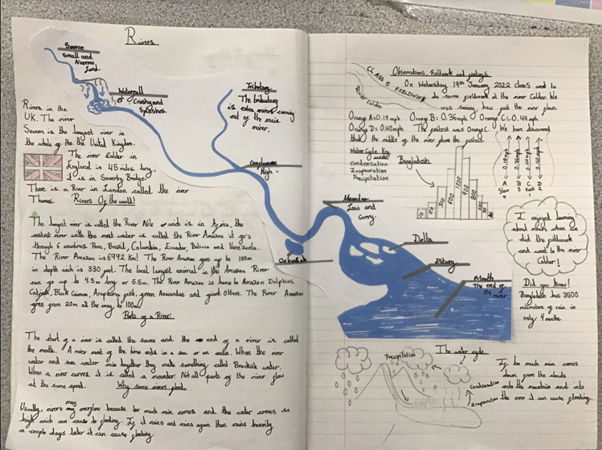 Rivers
Source
Small and
Narrow
land.
Waterfall
Crashing and
Splashes
Tributary
The tributary
is extra rivers coming
out of the main
river.
Confluence
High -
Meander
Low and
Curvy.
Delta
Estuary
Mouth
The end of
the river
Rivers in the
UK. The river
Severn is the longest river in
the whole of the United Kingdom.
The river Calder in
England is 45 miles long
it is in Sowerby Bridge.
There is a River in London called the river
Thames.
Rivers Of the world!
The longest river is called the River Nile which is in Africa, the
widest river with the most water is called the River Amazon it go's
through 6 countries Peru, Brazil, Columbia, Ecuador, Bolivia and Venezuela.
The River Amazon is 6992 Km! The River Amazon goes up to 100m
in depth wich is 330 feet. The local largest animal in the Amazon River
can go up to 4.5m long or 5.5m. The River Amazon is home to Amazon Dolphins,
Black Caiman, Arapaima fish, green Anacondas and giant Otters. The River Amazon
goes from 20m all the way to 100m!
Parts of a River
The start of a river is called the source and the end of a river is called
the mouth. A river most of the time ends in a sea or an ocean. When the river
water and sea water mix together they make something called Brackish water.
When a river curves it is called a meander. Not all parts of the river flow
at the same speed.
Why some rivers flood.
Usually, rivers may overflow because too much rain comes and the water comes so
high wich can cause to flooding. If it rains and rains again then rains heavily
a couple days later it can cause flooding.
CLASS 5 FIELDWORK
River Calder
Observations, fieldwork and findings
On Wednesday 19th January 2022 class 5 went to
do some fieldwork at the river Calder. We
was seeing how fast the river flows.
Orange A: 0.19mph Orange B: 0.36mph Orange C: 0.44mph
Orange D: 0.40mph The fastest was Orange C. We have discovered
that the middle of the river flows the fastest.
Water Cycle Key
Condensation
Evaporation
Precipitation
Bangladesh
A
B
C
D
I enjoyed learning
about rivers when we
did the fieldwork
and went to the river
Calder!
Did you know!
Bangladesh has 3500
milimetres of rain in
only 4 months.
The water cycle
Precipitation
Condensation
Evaporation
If too much rain comes
down from the clouds
onto the mountain and into
the river it can cause flooding.